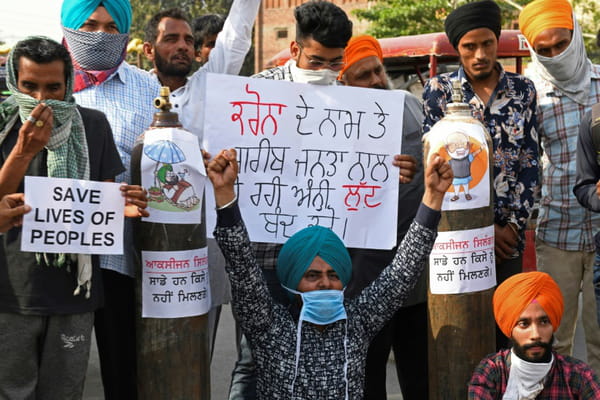 SAVE
LIVES OF
PEOPLES
ਕਰੋਨਾ ਦੇ ਨਾਮ ਤੇ
ਗਰੀਬ ਜਨਤਾ ਨਾਲ
ਰਹੀ ਅੰਨੀ ਲੁੱਟ
ਬੰਦ ਕਰੋ।
ਆਕਸੀਜਨ
ਸਾਡੇ ਹਨ ਕਿਸੇ
ਨਹੀਂ ਮਿਲਣਗੇ
ਆਕਸੀਜਨ
ਸਾਡੇ ਹਨ ਕਿਸੇ
ਨਹੀਂ ਮਿਲਣਗੇ